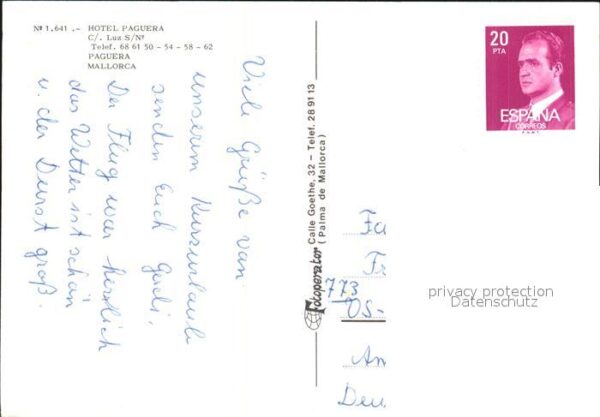 Nº 1.641.- HOTEL PAGUERA
C/. Luz S/Nº
Telef. 68 61 50 - 54 - 58 - 62
PAGUERA
MALLORCA
Viele Grüße von
unserem Kurzurlaub
senden Euch
Der Flug war herrlich
das Wetter ist schön
u. der Durst groß.
Fotoperator Calle Goethe, 32 - Telef. 28 91 13
(Palma de Mallorca)
20
PTA
ESPAÑA
CORREOS
F.N.M.T.
Fa
773
OS-
An
Deu
privacy protection
Datenschutz